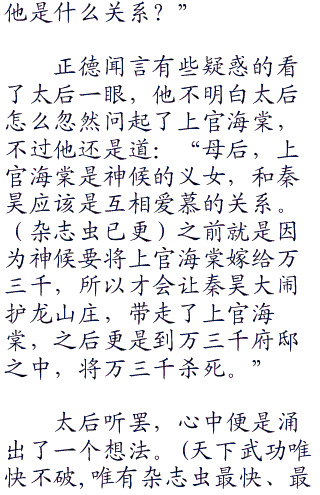 他是什么关系？”
正德闻言有些疑惑的看
了太后一眼，他不明白太后
怎么忽然问起了上官海棠，
不过他还是道：“母后，上
官海棠是神候的义女，和秦
昊应该是互相爱慕的关系。
（杂志虫已更）之前就是因
为神候要将上官海棠嫁给万
三千，所以才会让秦昊大闹
护龙山庄，带走了上官海
棠，之后更是到万三千府邸
之中，将万三千杀死。”
太后听罢，心中便是涌
出了一个想法。(天下武功唯
快不破,唯有杂志虫最快、最